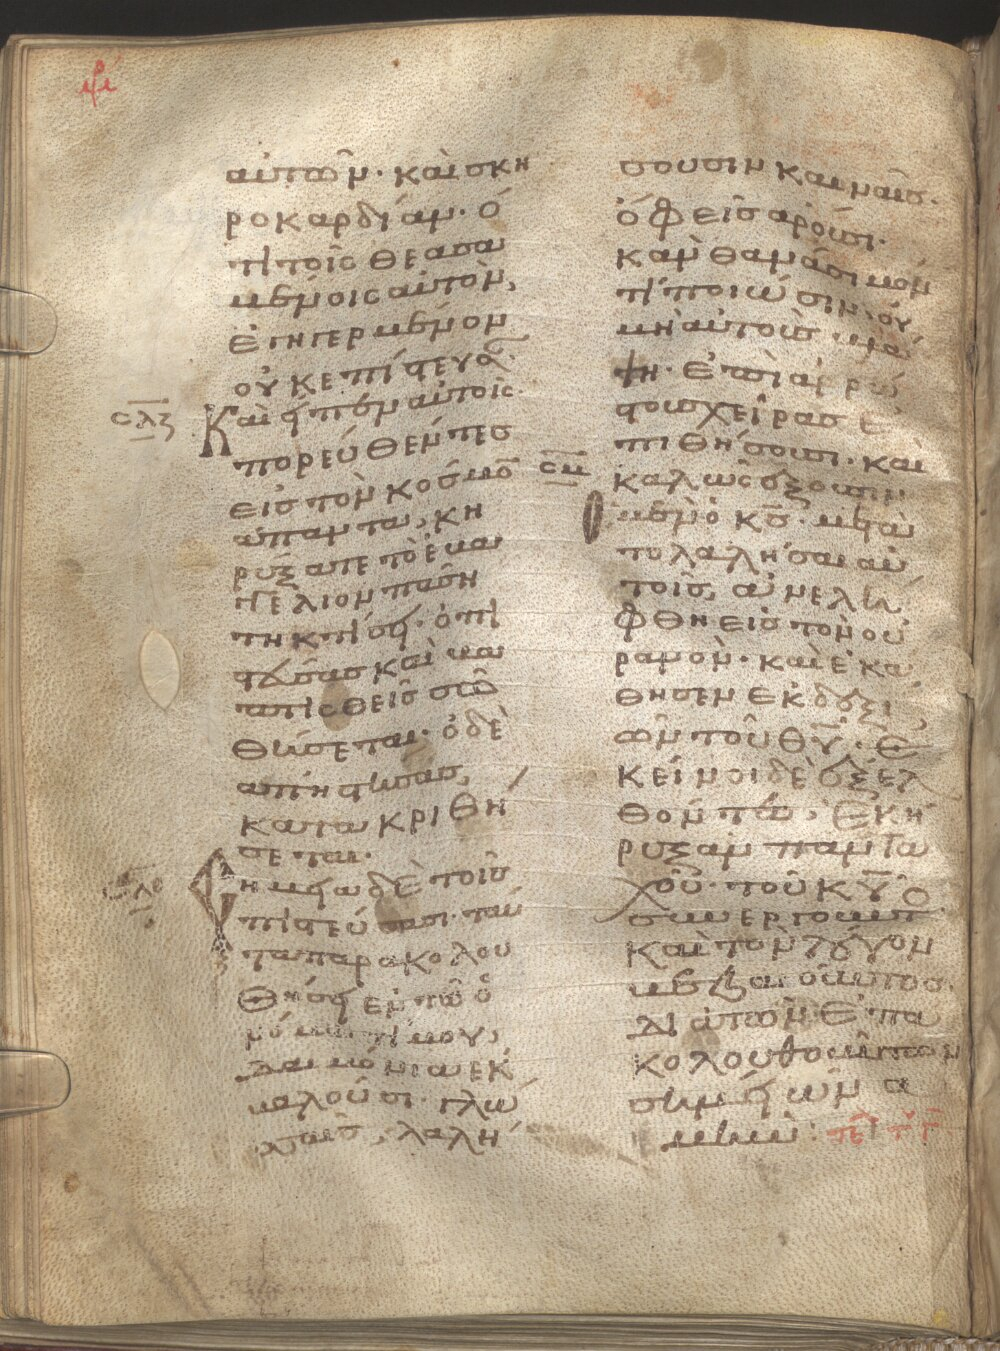 αὐτῶν· καὶ σκλη
ροκαρδίαν· ὅ
τι τοῖς θεασα
μένοις αὐτὸν,
ἐγηγερμένον
οὐκ ἐπίστευσαν·
σλζ
Καὶ εἶπεν αὐτοῖς·
πορευθέντες
εἰς τὸν κόσμον
ἅπαντα, κη
ρύξατε τὸ εὐαγ
γέλιον πάση
τῆ κτίσει· ὁ πι
στεύσας καὶ βα
πτισθεὶς σω
θήσεται· ὁ δὲ
ἀπιστήσας,
κατακριθή
σεται·
Σημεῖα δὲ τοῖς
πιστεύσασι· ταῦ
τα παρακολου
θήσει ἐν τῶ ὀ
νόματί μου,
δαιμόνια ἐκ
βαλοῦσι· γλώ
σσαις, λαλή
σουσιν καιναῖς·
ὄφεις ἀροῦσι·
κἂν θανάσιμόν
τι πίωσιν· οὐ
μὴ αὐτοὺς βλά
ψη· ἐπὶ ἀρρώ
στους χεῖρας ἐ
πιθήσουσι· καὶ
καλῶς ἕξουσιν
σμ
Ὁ μὲν ὁ κς· μετὰ
τὸ λαλῆσαι αὐ
τοῖς, ἀνελή
φθη εἰς τὸν οὐ
ρανὸν· καὶ ἐκά
θησεν ἐκ δεξι
ῶν τοῦ θυ· Ἐ
κεῖνοι δὲ ἐξελ
θόντες, ἐκή
ρυξαν πανταχοῦ· τοῦ κυ
συνεργοῦντος
καὶ τὸν λόγον
βεβαιοῦντος·
διὰ τῶν ἐπα
κολουθούντων
σημείων ἀ
μήν: